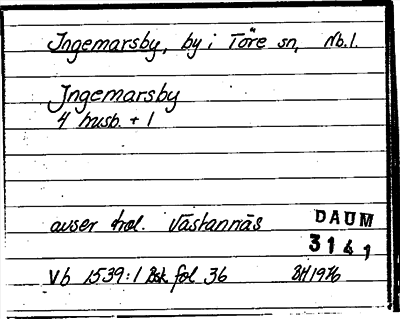 Ingemarsby, by i Töre sn, Nb.l.
Ingemarsby
4 husb. + 1
avser trol. Västannäs
DAUM
3141
Vb 1539:1 Bsk fol 36 BH 1976